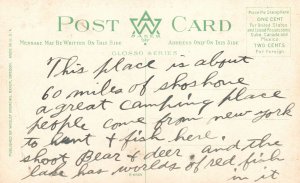 POST CARD
PLACE POSTAGE STAMP HERE
ONE CENT
For United States
and Island Possessions
Cuba, Canada and
Mexico
TWO CENTS
For Foreign
MESSAGE MAY BE WRITTEN ON THIS SIDE
ADDRESS ONLY ON THIS SIDE
GLOSSO SERIES
MADE IN U.S.A.
This place is about
60 miles of shoshone
a great camping place
people come from new york
to hunt & fish here.
shoot Bear & deer. and the
lake has worlds of red fish
in it